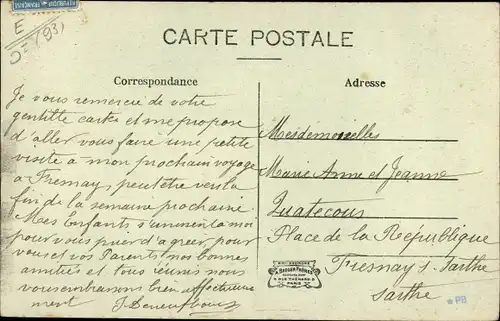 E
CARTE POSTALE
Correspondance
Adresse
Je vous remercie de votre
gentille carte et me propose
d'aller vous faire une petite
visite à mon prochain voyage
à Fresnay, peut être vers la
fin de la semaine prochaine.
Mes Enfants s'unissent a moi
pour vous prier d'agréer, pour
vous et vos Parents nos bonnes
amitiés et tous réunis nous
vous embrassons bien affectueuse
ment
Mesdemoiselles
Marie Anne et Jeanne
Quatecous
Place de la République
Fresnay s. Sarthe
Sarthe
PARIS
*PB